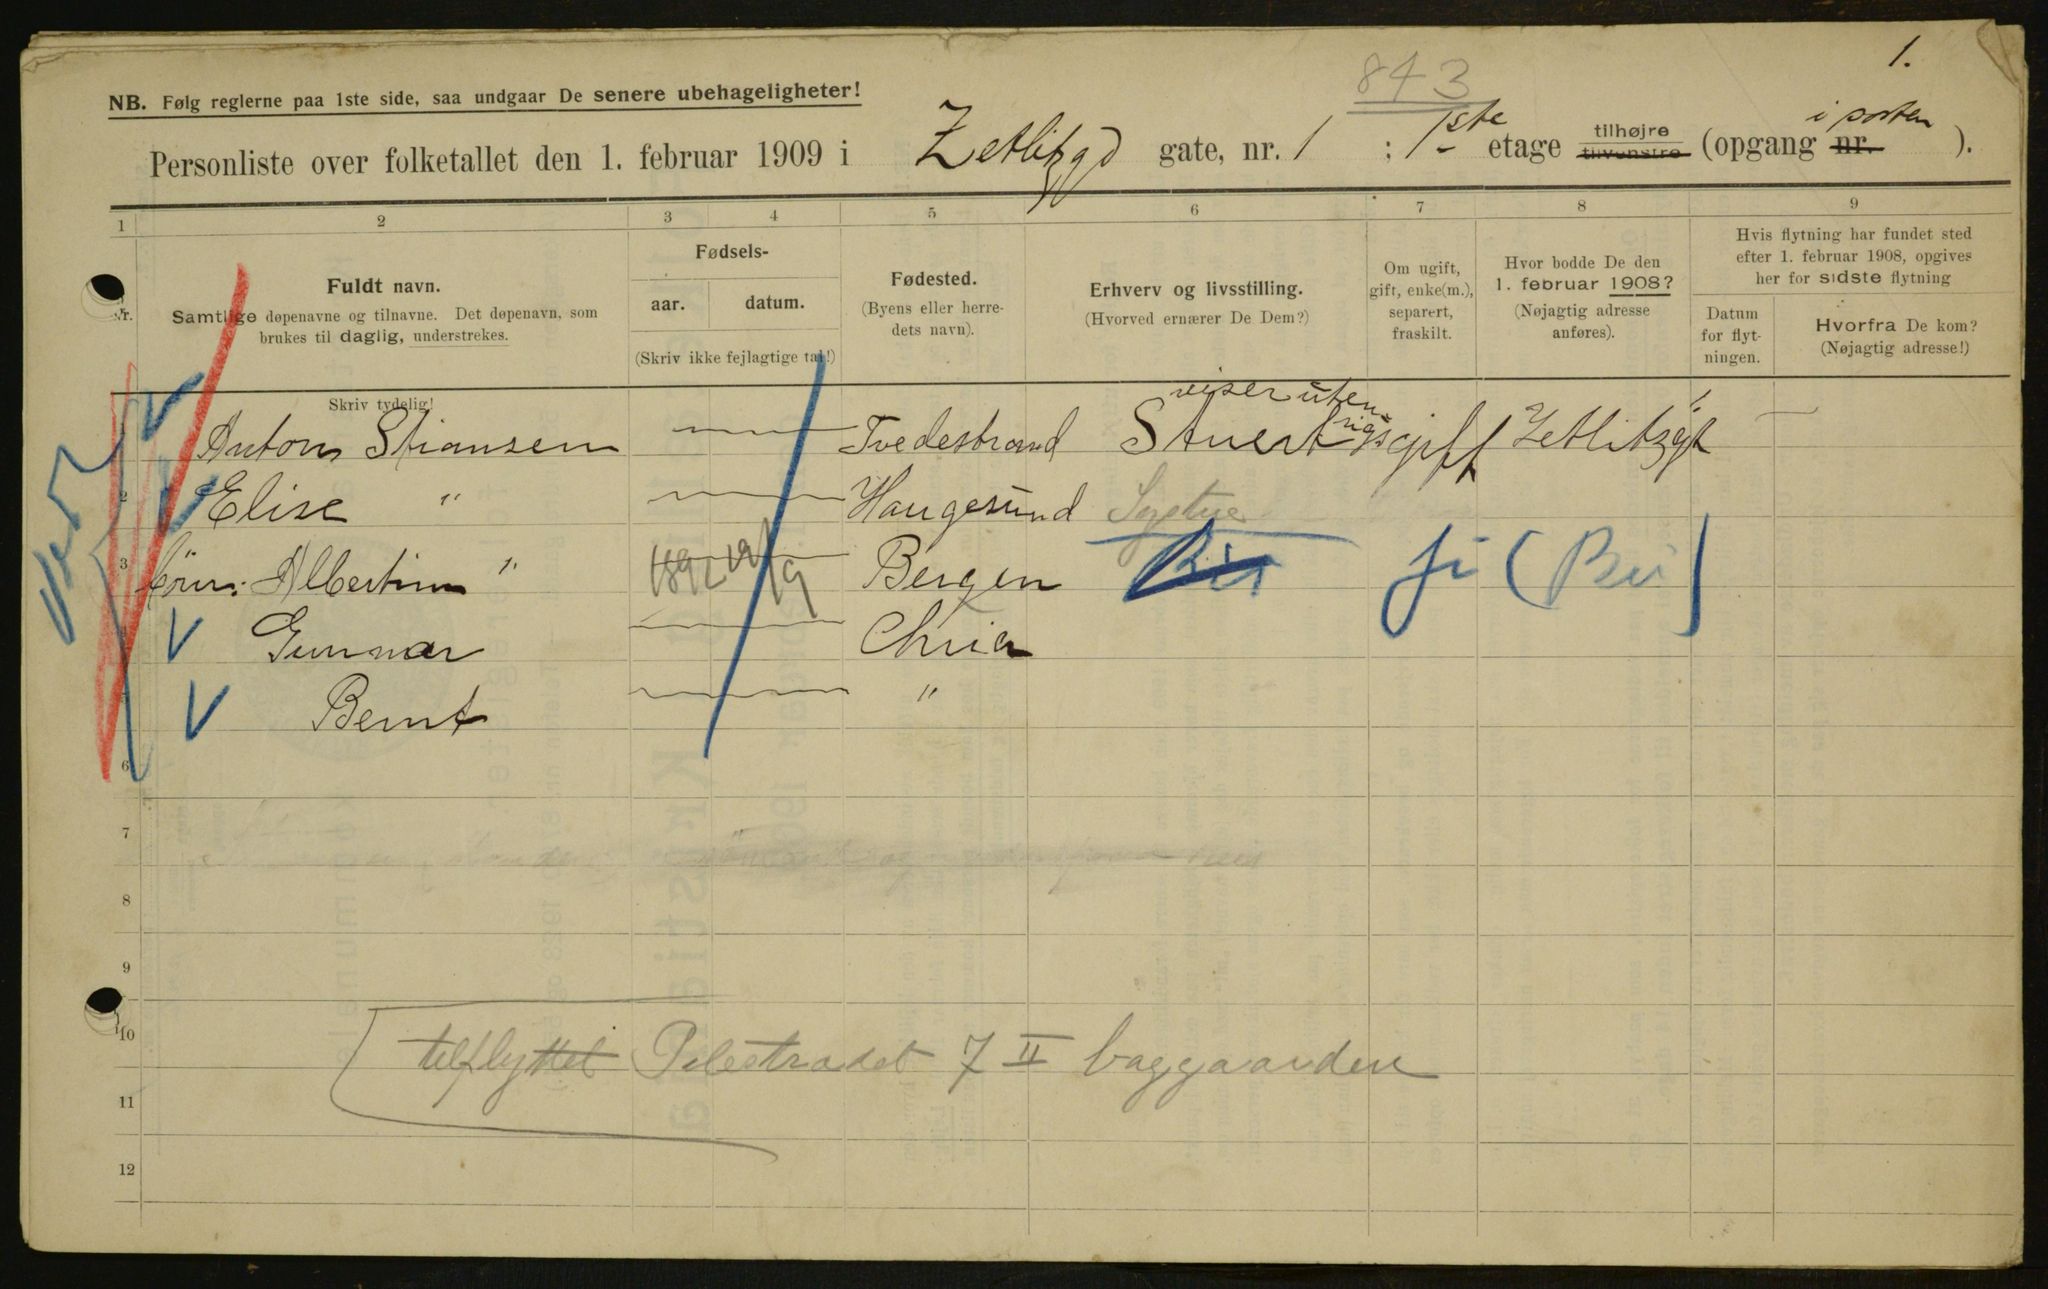 1.
843
NB. Følg reglerne paa 1ste side, saa undgaar De senere ubehageligheter!
Personliste over folketallet den 1. februar 1909 i Zetlitzgd gate, nr. 1 ; 1ste etage tilhøjre tilvenstre (opgang nr. i porten ).
1 2 3 4 5 6 7 8 9
Nr.
Fuldt navn.
Samtlige døpenavne og tilnavne. Det døpenavn, som
brukes til daglig, understrekes.
Skriv tydelig!
Fødsels-
aar. datum.
(Skriv ikke fejlagtige tal!)
Fødested.
(Byens eller herre-
dets navn).
Erhverv og livsstilling.
(Hvorved ernærer De Dem?)
Om ugift,
gift, enke(m.),
separert,
fraskilt.
Hvor bodde De den
1. februar 1908?
(Nøjagtig adresse
anføres).
Hvis flytning har fundet sted
efter 1. februar 1908, opgives
her for sidste flytning
Datum
for flyt-
ningen.
Hvorfra De kom?
(Nøjagtig adresse!)
1 Anton Stiansen Tvedestrand Stuert gift Zetlitzgt 1
2 Elise " Haugesund Systue
3 Albertine " 1892 19/9 Bergen
Gunnar Chria
Bernt "
6
7
8
9
10 tilflyttet Pilestrædet 7 II baggaarden
11
12